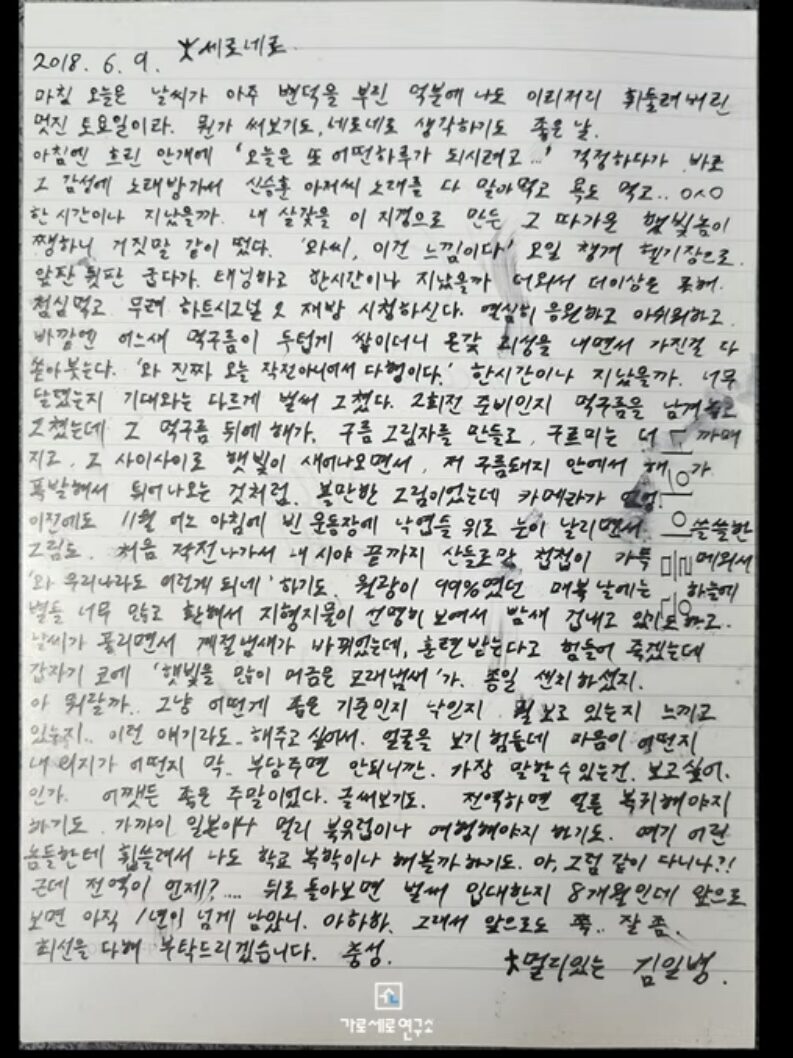 大세로네로
2018. 6. 9.
마침 오늘은 날씨가 아주 변덕을 부린 덕분에 나도 이리저리 휘둘려버린
멋진 토요일이라. 뭔가 써보기도, 네로네로 생각하기도 좋은 날.
아침엔 흐린 안개에 '오늘은 또 어떤하루가 되시려고...' 걱정하다가 바로
그 감성에 노래방가서 신승훈 아저씨 노래를 다 말아먹고 욕도 먹고.. ㅇㅅㅇ
한시간이나 지났을까. 내 살갗을 이 지경으로 만든 그 따가운 햇빛놈이
쨍하니 거짓말 같이 떴다. '와씨, 이건 느낌이다' 오일 챙겨 헬기장으로.
앞판 뒷판 굽다가. 태닝하고 한시간이나 지났을까 더워서 더이상은 못해.
점심먹고 무려 하트시그널 2 재방 시청하신다. 열심히 응원하고 아쉬워하고.
바깥엔 어느새 먹구름이 두텁게 쌓이더니 온갖 괴성을 내면서 가진걸 다
쏟아붓는다. '와 진짜 오늘 작전아니어서 다행이다.' 한시간이나 지났을까. 너무
달랬는지 기대와는 다르게 벌써 그쳤다. 2회전 준비인지 먹구름을 남겨놓고
그쳤는데 그 먹구름 뒤에 해가. 구름 그림자를 만들고, 구르미는 더 까매
지고, 그 사이사이로 햇빛이 새어나오면서, 저 구름돼지 안에서 해가
폭발해서 튀어나오는 것처럼. 볼만한 그림이었는데 카메라가
이전에도 11월 어느 아침에 빈 운동장에 낙엽들 위로 눈이 날리면서 쓸쓸한
그림도. 처음 작전나가서 내 시야 끝까지 산들로만 첩첩이 가득 메워서
'와 우리나라도 이런게 되네' 하기도. 월광이 99%였던 매복 날에는 하늘에
별들 너무 많고 환해서 지형지물이 선명히 보여서 밤새 겁내고 있기도하고..
날씨가 풀리면서 계절냄새가 바뀌었는데, 훈련받는다고 힘들어 죽겠는데
갑자기 코에 '햇빛을 많이 머금은 모래냄새'가. 종일 센치하셨지.
아 뭐랄까. 그냥 어떤게 좋은 기준인지 낙인지 뭘 보고 있는지 느끼고
있는지.. 이런 얘기라도.. 해주고 싶어서. 얼굴을 보기 힘든데 마음이 어떤지
내 의지가 어떤지 막.. 부담주면 안되니깐. 가장 말할수있는건. 보고싶어.
인가. 어쨌든 좋은 주말이었다. 글써보기도. 전역하면 얼른 복귀해야지
하기도. 가까이 일본이나 멀리 북유럽이나 여행해야지 하기도. 여기 어린
놈들한테 휩쓸려서 나도 학교 복학이나 해볼까하기도. 아, 그럼 같이 다니나?!
근데 전역이 언제?.... 뒤로 돌아보면 벌써 입대한지 8개월인데 앞으로
보면 아직 1년이 넘게 남았니. 아하하. 그래서 앞으로도 쭉.. 잘 좀.
최선을 다해 부탁드리겠습니다. 충성.
大멀리있는 김일병.
가로세로연구소